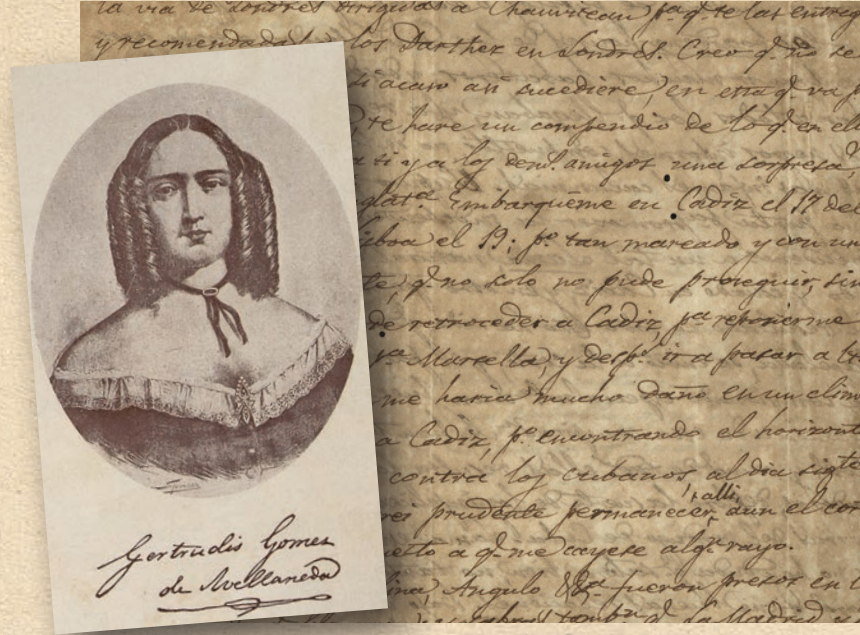 la via de Londres dirigidas a Chauviteau pa q.e te las entreg
y recomendadas los Darthez en Londres. Creo q.e no se
si acaso asi sucediere, en esta q.e va p
te hare un compendio de lo q.e en el
a ti y a los dem.s amigos una sorpresa
glat.a Embarquéme en Cadiz el 17 de
isboa el 19; p.o tan mareado y con un
te, q.e no solo no pude proseguir, sin
de retroceder a Cadiz, p.a reponerme
p.a Marsella, y desp.s ir a pasar a
me haria mucho daño en un clim
a Cadiz, p.o encontrando el horizont
contra los cubanos, al dia sig.te
rei prudente permanecer alli, aun el cor
esto a q.e me cayese alg.n rayo.
ina, Angulo &.a fueron presos en
Madrid
Gertrudis Gomez
de Avellaneda